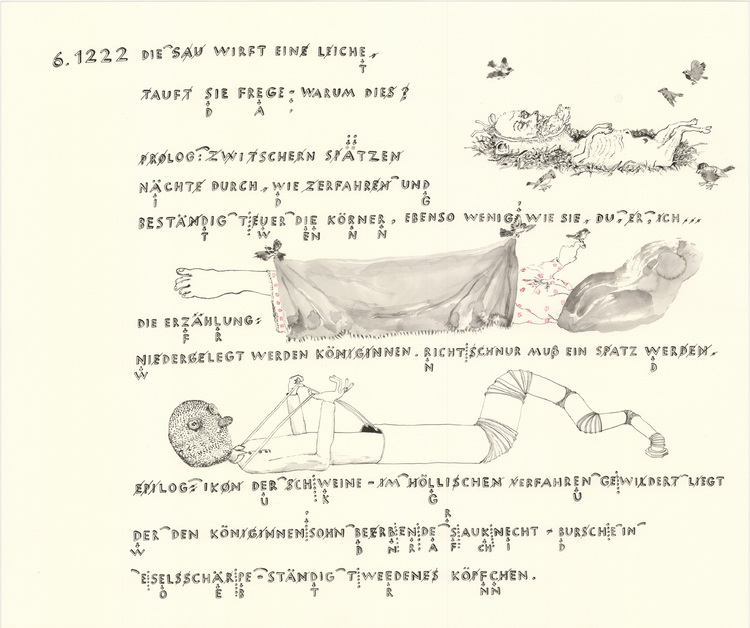 6.1222 DIE SAU WIRFT EINE LEICHE,
T
TAUFT SIE FREGE - WARUM DIES?
D A
PROLOG: ZWITSCHERN SPÄTZEN
NÄCHTE DURCH, WIE ZERFAHREN UND
I D G
BESTÄNDIG TEUER DIE KÖRNER, EBENSO WENIG, WIE SIE, DU, ER, ICH...
T W EN N N
DIE ERZÄHLUNG:
F R
NIEDERGELEGT WERDEN KÖNIGINNEN. RICHTSCHNUR MUß EIN SPATZ WERDEN.
W N D
EPILOG: IKON DER SCHWEINE - IM HÖLLISCHEN VERFAHREN GEWILDERT LIEGT
U K G U
R
DER DEN KÖNIGINNENSOHN BEERBENDE SAUKNECHT - BURSCHE IN
W D N R A F CH I D
ESELSSCHÄRPE - STÄNDIG TWEEDENES KÖPFCHEN.
O E B T R NN